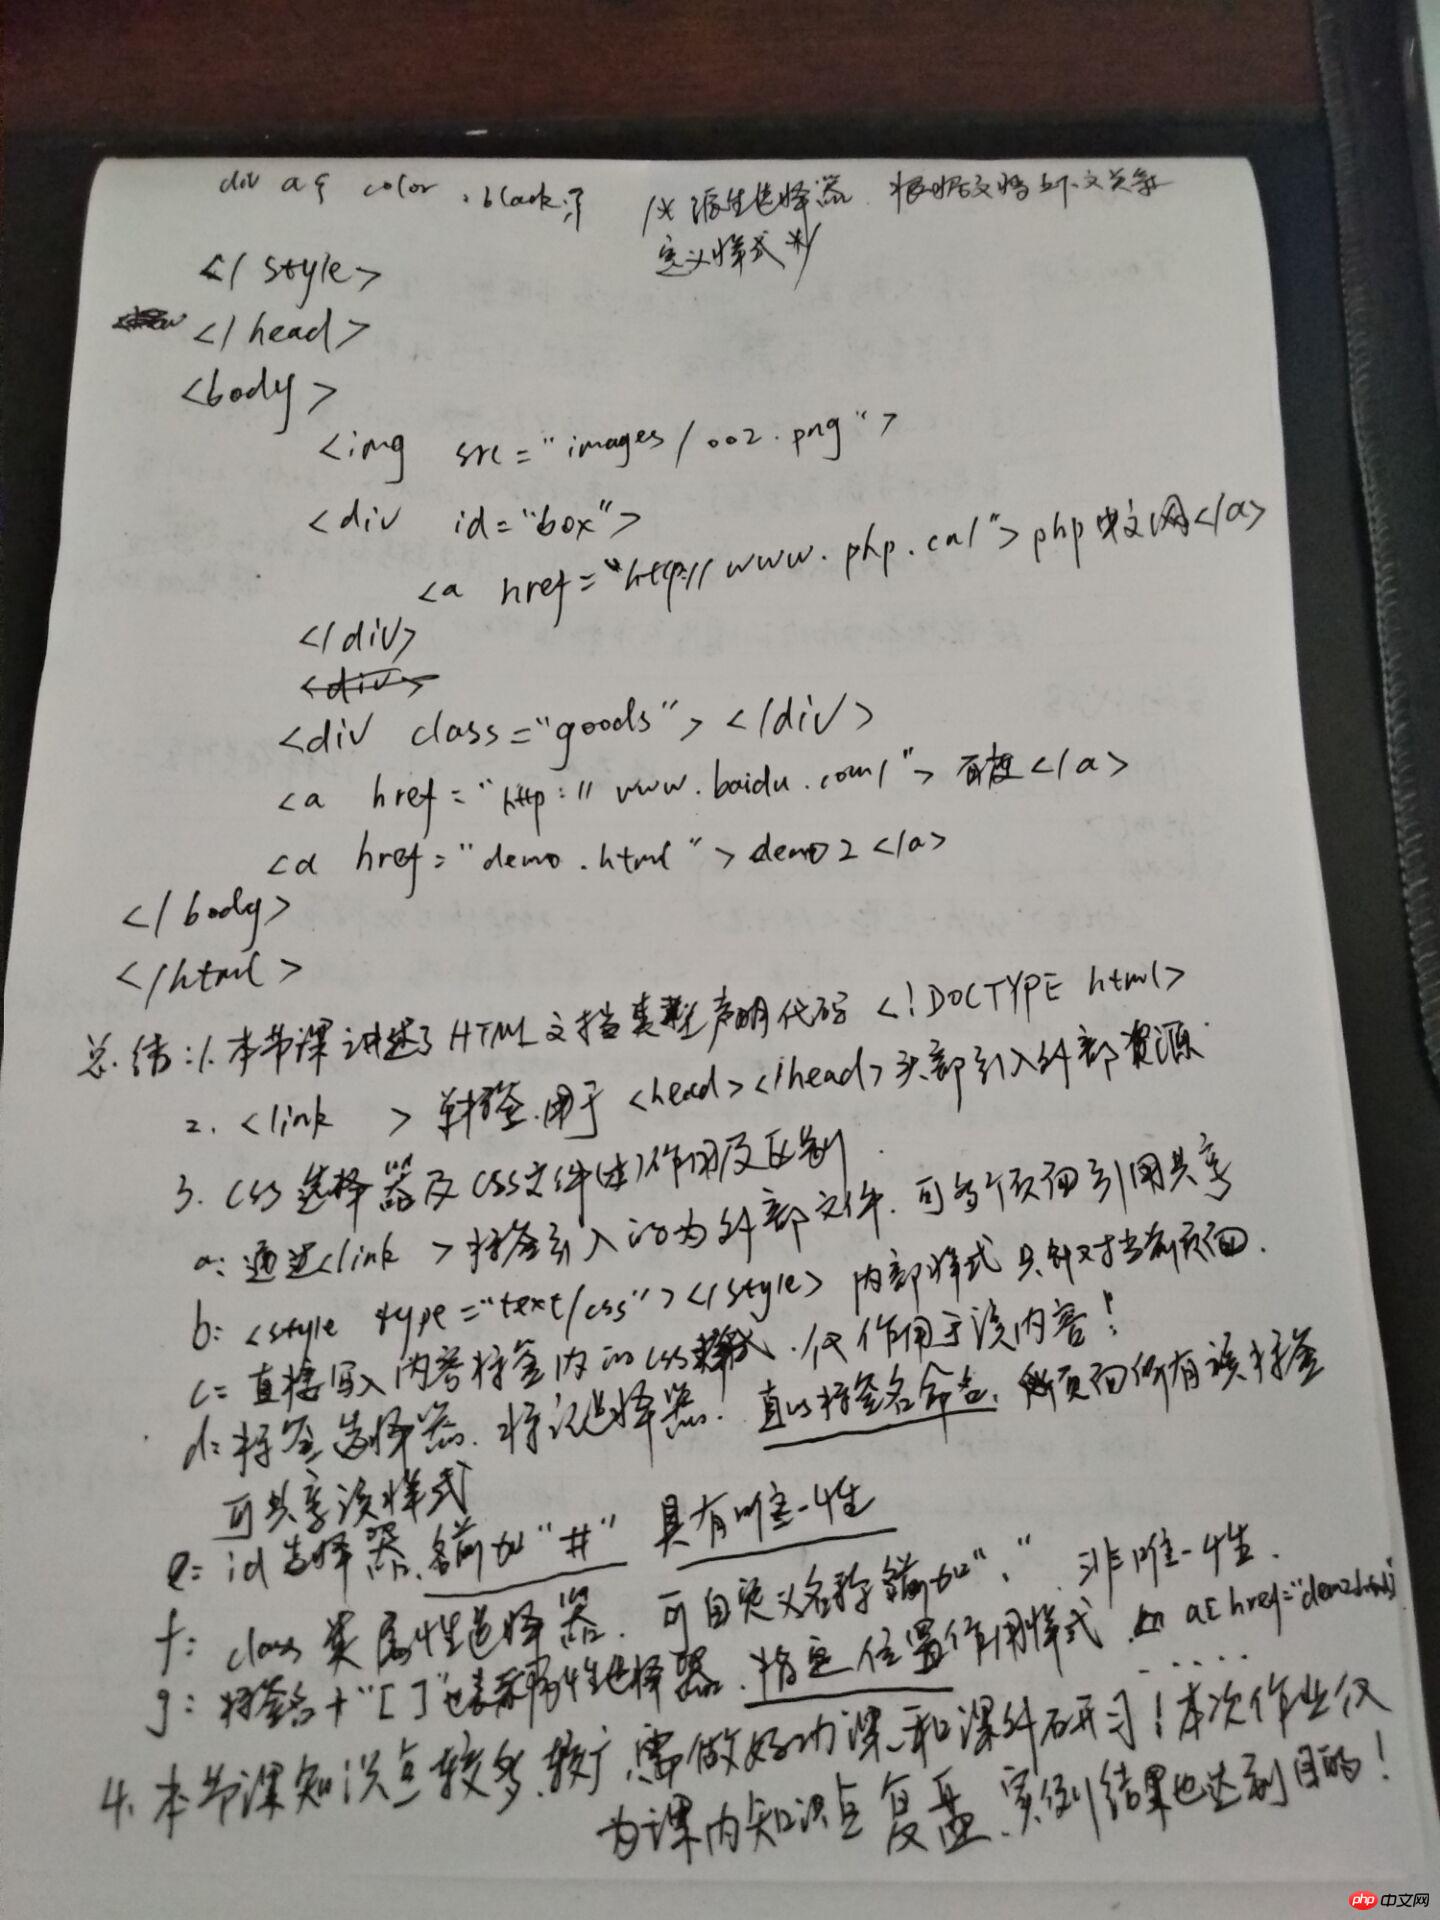 div a{ color:black;} /* 派生选择器.根据文档上下文关系
定义样式 */
</style>
</head>
<body>
<img src="images/002.png">
<div id="box">
<a href="http://www.php.cn/">php中文网</a>
</div>
<div>
<div class="goods"></div>
<a href="http://www.baidu.com/">百度</a>
<a href="demo.html">demo2</a>
</body>
</html>
总结:1.本节课讲述了HTML文档类型声明代码<!DOCTYPE html>
2.<link >单标签.用于<head></head>头部引入外部资源.
3.CSS选择器及CSS文件作用及区别.
a:通过<link >标签引入的为外部文件.可多个页面引用共享
b:<style type="text/css"></style>内部样式 只针对当前页面.
c:直接写入内容标签内的css样式.仅作用于该内容!
d:标签选择器.标记选择器.直以标签名命名.页面所有该标签
可共享该样式
e:id选择器.名前加"#" 具有唯一性
f:class类属性选择器.可自定义名称名前加".".非唯一性.
g:标签名+"[]"也表示属性选择器.指定位置作用样式.如a[href="demo2.html"]
4.本节课知识点较多.较广.需做好功课和课外研习!本次作业仅
为课内知识点复盘.实例结果也达到目的!
php中文网